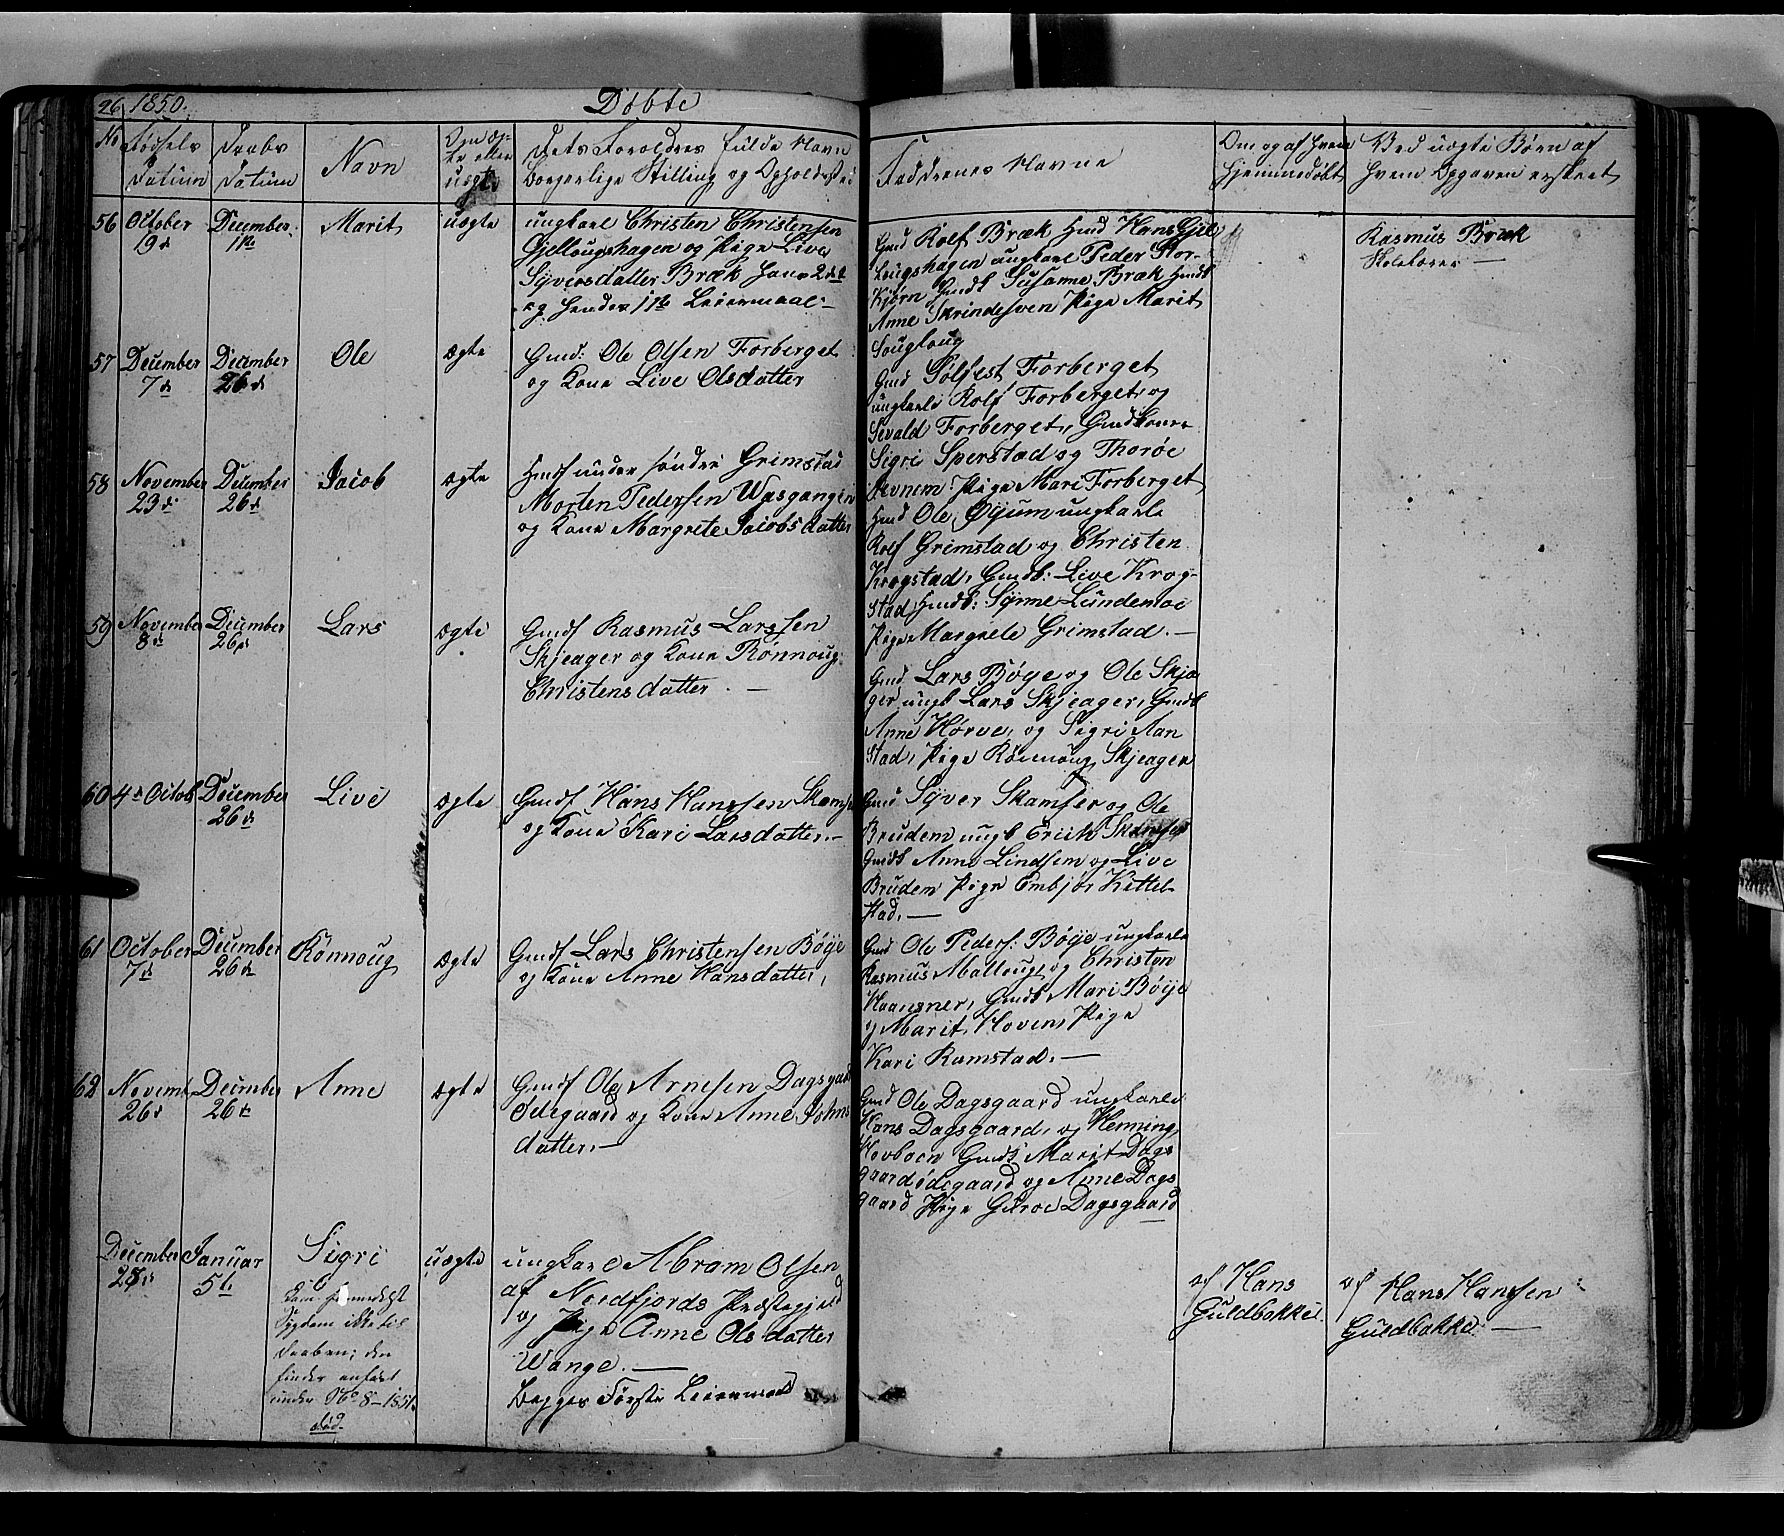 26 1850. Døbte
No Fødsels Datum
Daabs Datum
Navn
Om ægte eller uægte
Dets Forældres fulde Navn
Borgerlige Stilling og Opholdssted
Faddernes Navne
Om og af hvem
hjemmedøbt
Ved uægte Børn af
hvem Opgaven er skeet
56 October 19d December 1ste Marit uægte
ungkarl Christen Christensen
Gjellougshagen og Pige Live
Syversdatter Bræk hans 2det
og hendes 1ste Leiermaal
Gmd Rolf Bræk Hmd Hans Gjel
lougshagen ungkarl Peder Stor-
Kjørn Gmdk Susanne Bræk Hmdk
Anne Skrindesven Pige Marit
Sougloug
Rasmus Bræk
Skolelærer —
57 December 7d December 26d Ole ægte
Gmd: Ole Olsen Forberget
og Kone Live Olsdatter
Gmd Sølfest Forberget
ungkarle Rolf Forberget og
Sevald Forberget, Gmdkoner
Sigri Sperstad og Thoröe
Nevnem Pige Mari Forberget
58 November 23d December 26d Jacob ægte
Hmd under søndre Grimstad
Morten Pedersen Wasgangen
og Kone Margrete Jacobsdatter
Hmd Ole Øyum ungkarle
Rolf Grimstad og Christen
Krogstad, Gmdk: Live Krog-
stad Hmdk: Synne Lundemoe
Pige Margrete Grimstad. —
59 November 8d December 26d Lars ægte
Gmd Rasmus Larssen
Skjeager og Kone Rønnoug
Christensdatter. —
Gmd Lars Bøye og Ole Skjea
ger ungk Lars Skjeager, Gmdk
Anne Hørve, og Sigri Aan
stad, Pige Rønnoug Skjeager
60 4d Octob December 26d Live ægte
Gmd Hans Hanssen Skamse
og Kone Kari Larsdatter. —
Gmd Syver Skamser og Ole
Brudem ungk Erich Skamser
Gmdk Anne Lindsem og Live
Brudem Pige Embjør Kittel
stad. —
61 October 7d December 26d Rønnoug ægte
Gmd Lars Christensen Bøye
og Kone Anne Hansdatter,
Gmd Ole Peders: Bøye ungkarle
Rasmus Malloug, og Christen
Haansner, Gmdk Mari Bøye
og Marit Hoven Pige
Kari Ramstad. —
62 Novemb 26d December 26d Anne ægte
Gmd Ole Arnesen Dagsgaard
Ødegaard og Kone Anne Johns
datter. —
Gmd Ole Dagsgaard ungkarle
Hans Dagsgaard, og Henning
Hovboen Gmdk Marit Dags
gaardødegaard og Anne Dags
gaard Pige Guroe Dagsgaard
December Januar 5te Sigri uægte
Kom formedelst
Sygdom ikke til
Daaben; den
findes anført
under No 8 - 1851.
død.
ungkarl Abram Olsen
af Nordfjords Præstegjeld
og Pige Anne Olsdatter
Wange. —
Begges Første Leiermaal
af Hans
Guldbakke.
af Hans Hanssen
Guldbakke. —